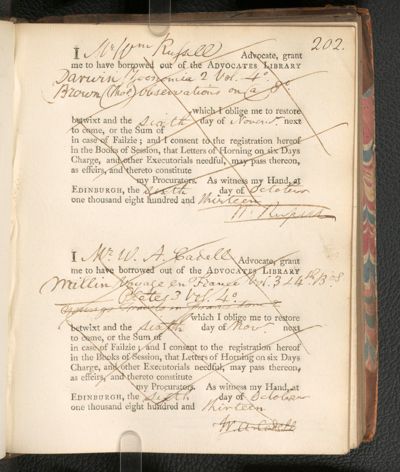 202.
I Mr Wm Russell Advocate, grant
me to have borrowed out of the ADVOCATES LIBRARY
Darwin Zoonomia 2 Vol. 4o.
Brown (Tho:) Observations on Do 8o.
, which I oblige me to restore
betwixt and the sixth day of Novemr. next
to come, or the Sum of
in case of Failzie; and I consent to the registration hereof
in the Books of Session, that Letters of Horning on six Days
Charge, and other Executorials needful, may pass thereon,
as effeirs, and thereto constitute
my Procurators. As witness my Hand, at
EDINBURGH, the sixth day of October
one thousand eight hundred and thirteen
W. Russell
I Mr. W. A. Cadell Advocate, grant
me to have borrowed out of the ADVOCATES LIBRARY
Millin Voyage en France Vol. 3 & 4th B 8
Plates 3 Vol. 4o.
which I oblige me to restore
betwixt and the sixth day of Novr. next
to come, or the Sum of
in case of Failzie; and I consent to the registration hereof
in the Books of Session, that Letters of Horning on six Days
Charge, and other Executorials needful, may pass thereon,
as effeirs, and thereto constitute
my Procurators. As witness my Hand, at
EDINBURGH, the sixth day of October
one thousand eight hundred and thirteen
W. A. Cadell